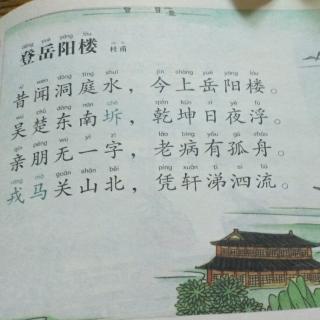 dēng yuè yáng lóu
登岳阳楼 杜甫
xī wén dòng tíng shuǐ jīn shàng yuè yáng lóu
昔闻洞庭水，今上岳阳楼。
wú chǔ dōng nán chè qián kūn rì yè fú
吴楚东南坼，乾坤日夜浮。
qīn péng wú yī zì lǎo bìng yǒu gū zhōu
亲朋无一字，老病有孤舟。
róng mǎ guān shān běi píng xuān tì sì liú
戎马关山北，凭轩涕泗流。